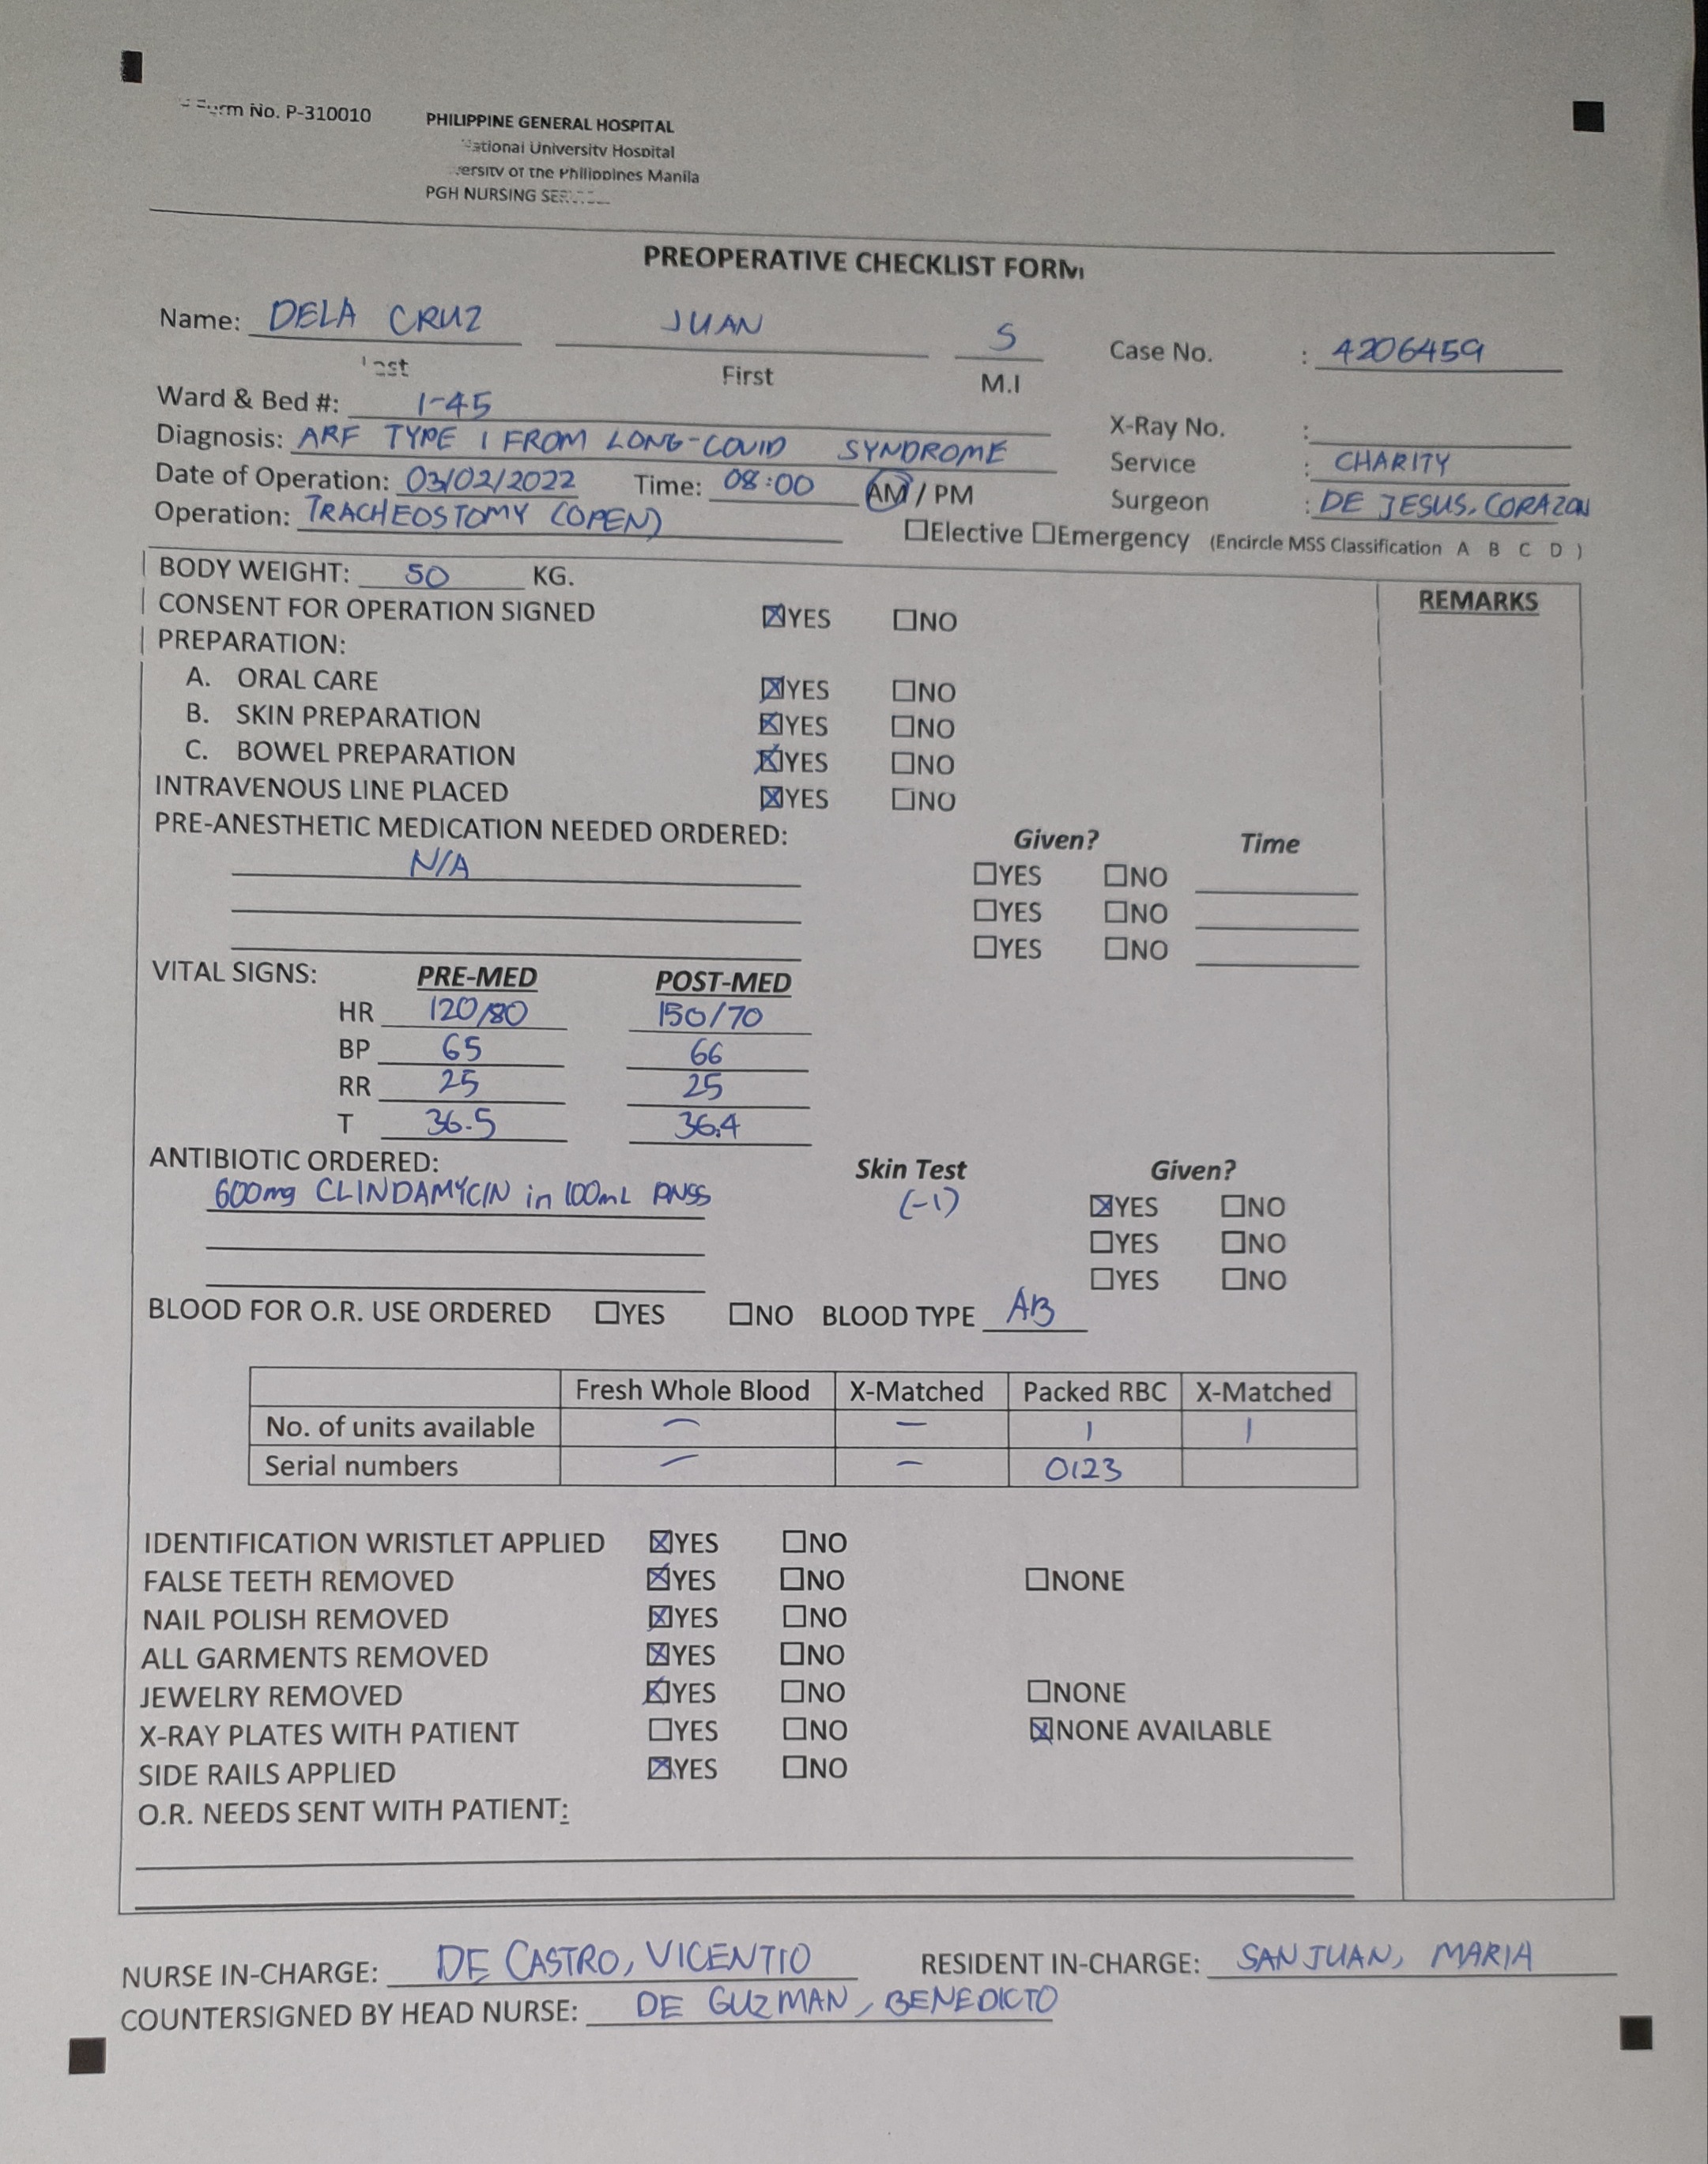 Form No. P-310010
PHILIPPINE GENERAL HOSPITAL
National University Hospital
of the Philippines Manila
PGH NURSING
PREOPERATIVE CHECKLIST FORM
Name: DELA CRUZ JUAN S Case No. : 4206459
Last First M.I
Ward & Bed #: 1-45 X-Ray No. :
Diagnosis: ARF TYPE 1 FROM LONG-COVID SYNDROME Service : CHARITY
Date of Operation: 03/02/2022 Time: 08:00 AM / PM Surgeon : DE JESUS, CORAZON
Operation: TRACHEOSTOMY (OPEN) ☐Elective ☐Emergency (Encircle MSS Classification A B C D )
BODY WEIGHT: 50 KG. REMARKS
CONSENT FOR OPERATION SIGNED ☒YES ☐NO
PREPARATION:
A. ORAL CARE ☒YES ☐NO
B. SKIN PREPARATION ☒YES ☐NO
C. BOWEL PREPARATION ☒YES ☐NO
INTRAVENOUS LINE PLACED ☒YES ☐NO
PRE-ANESTHETIC MEDICATION NEEDED ORDERED: Given? Time
N/A ☐YES ☐NO
☐YES ☐NO
☐YES ☐NO
VITAL SIGNS: PRE-MED POST-MED
HR 120/80 150/70
BP 65 66
RR 25 25
T 36.5 36.4
ANTIBIOTIC ORDERED: Skin Test Given?
600mg CLINDAMYCIN in 100mL PNSS (-1) ☒YES ☐NO
☐YES ☐NO
☐YES ☐NO
BLOOD FOR O.R. USE ORDERED ☐YES ☐NO BLOOD TYPE AB
Fresh Whole Blood X-Matched Packed RBC X-Matched
No. of units available — — 1 1
Serial numbers — — 0123
IDENTIFICATION WRISTLET APPLIED ☒YES ☐NO
FALSE TEETH REMOVED ☒YES ☐NO ☐NONE
NAIL POLISH REMOVED ☒YES ☐NO
ALL GARMENTS REMOVED ☒YES ☐NO
JEWELRY REMOVED ☒YES ☐NO ☐NONE
X-RAY PLATES WITH PATIENT ☐YES ☐NO ☒NONE AVAILABLE
SIDE RAILS APPLIED ☒YES ☐NO
O.R. NEEDS SENT WITH PATIENT:
NURSE IN-CHARGE: DE CASTRO, VICENTIO RESIDENT IN-CHARGE: SAN JUAN, MARIA
COUNTERSIGNED BY HEAD NURSE: DE GUZMAN, BENEDICTO